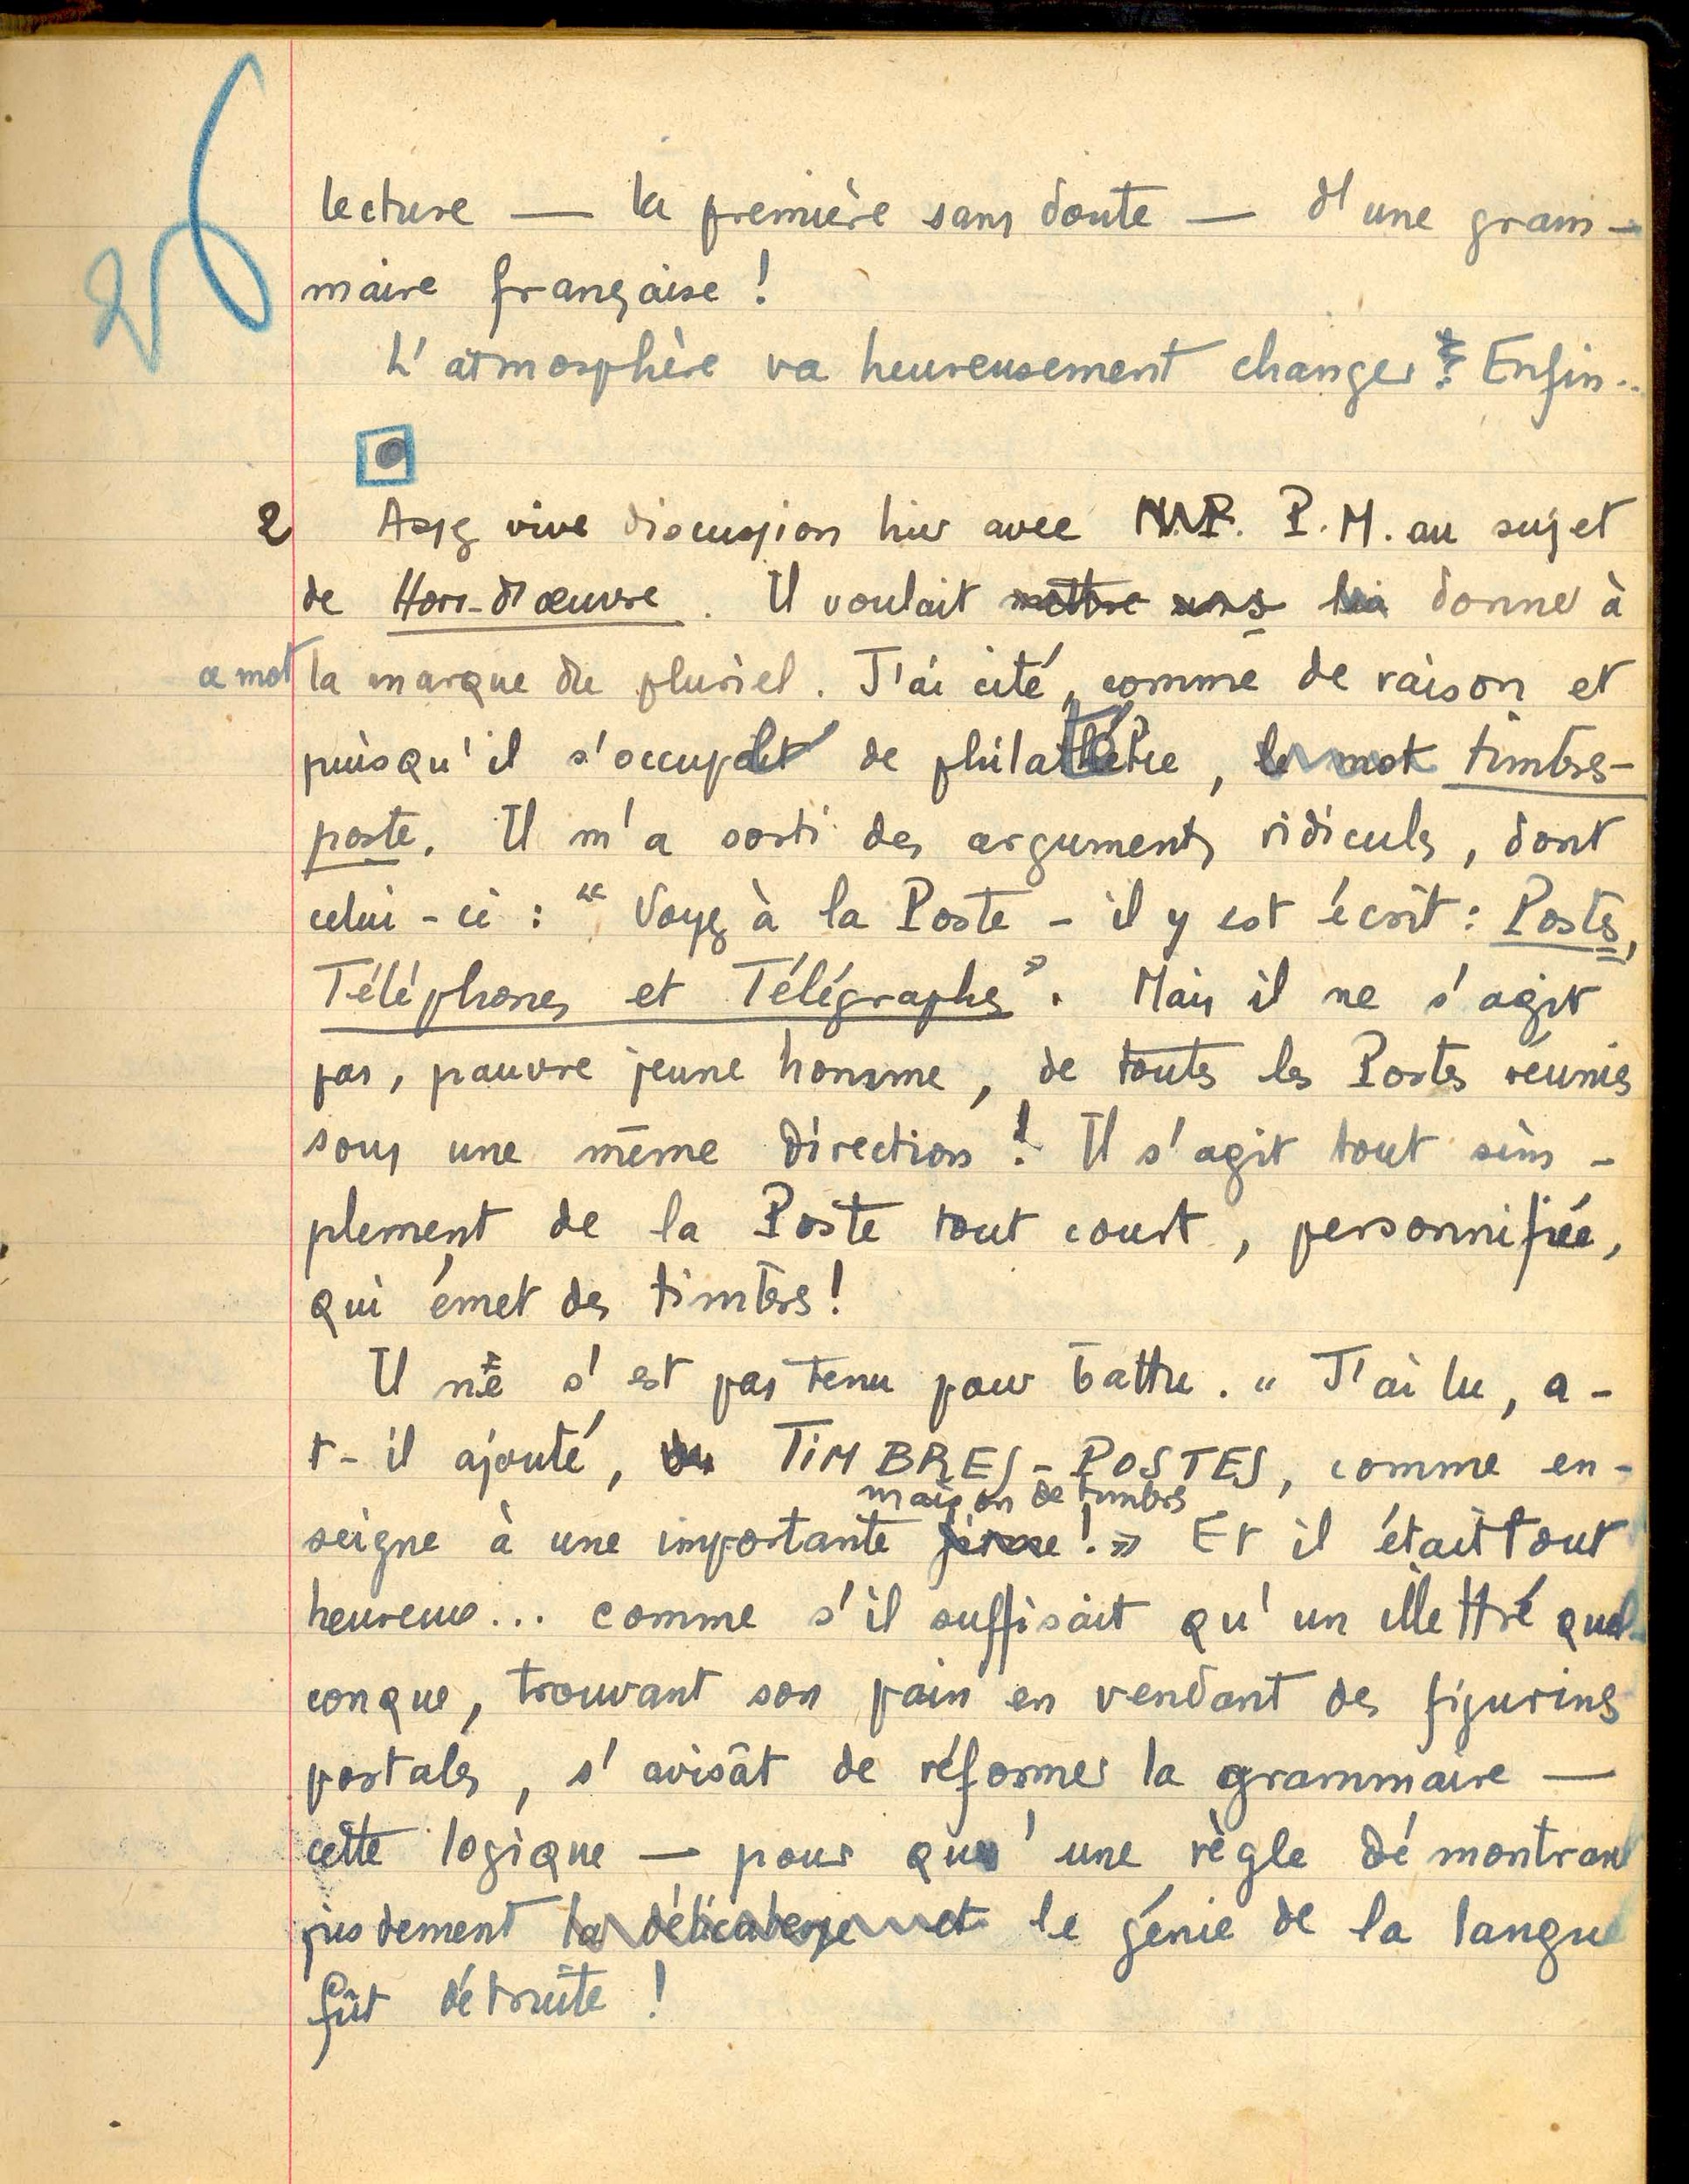 26
lecture — la première sans doute — d'une gram-
maire française !
L'atmosphère va heureusement changer ! Enfin..
2 Assez vive discussion hier avec M.P. P.M. au sujet
de Hors-d'œuvre. Il voulait mettre uns lui donner à
ce mot la marque du pluriel. J'ai cité, comme de raison et
puisqu'il s'occupait de philatélie, le mot timbre-
poste. Il m'a sorti des arguments ridicules, dont
celui-ci : " Voyez à la Poste - il y est écrit : Postes,
Téléphones et Télégraphes ". Mais il ne s'agit
pas, pauvre jeune homme, de toutes les Postes réunies
sous une même direction ! Il s'agit tout sim-
plement de la Poste tout court, personnifiée,
qui émet des timbres !
Il ne s'est pas tenu pour battu. " J'ai lu, a-
t-il ajouté, TIMBRES-POSTES, comme en-
maison de timbres
seigne à une importante firme ! » Et il était tout
heureux... comme s'il suffisait qu'un illettré quel-
conque, trouvant son pain en vendant des figurines
postales, s'avisât de réformer la grammaire —
cette logique — pour qu'une règle démontrant
justement la délicatesse et le génie de la langue
fût détruite !